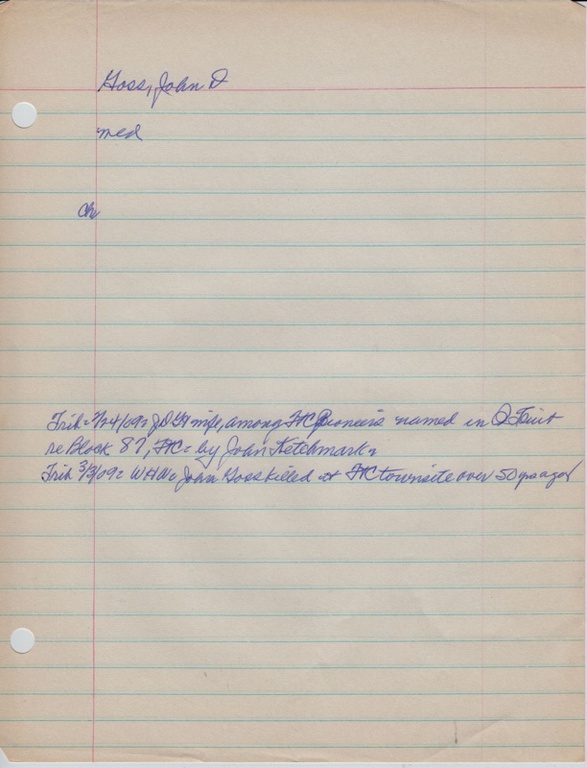 Goss, John D
med
ch
Trib: 7/24/09: J D G & wife, among FtC Pioneers named in Q T Suit
re Block 87, FtC: by John Ketchmark.
Trib 3/3/09: WHW: John Goss killed at FtC townsite over 50 yrs ago